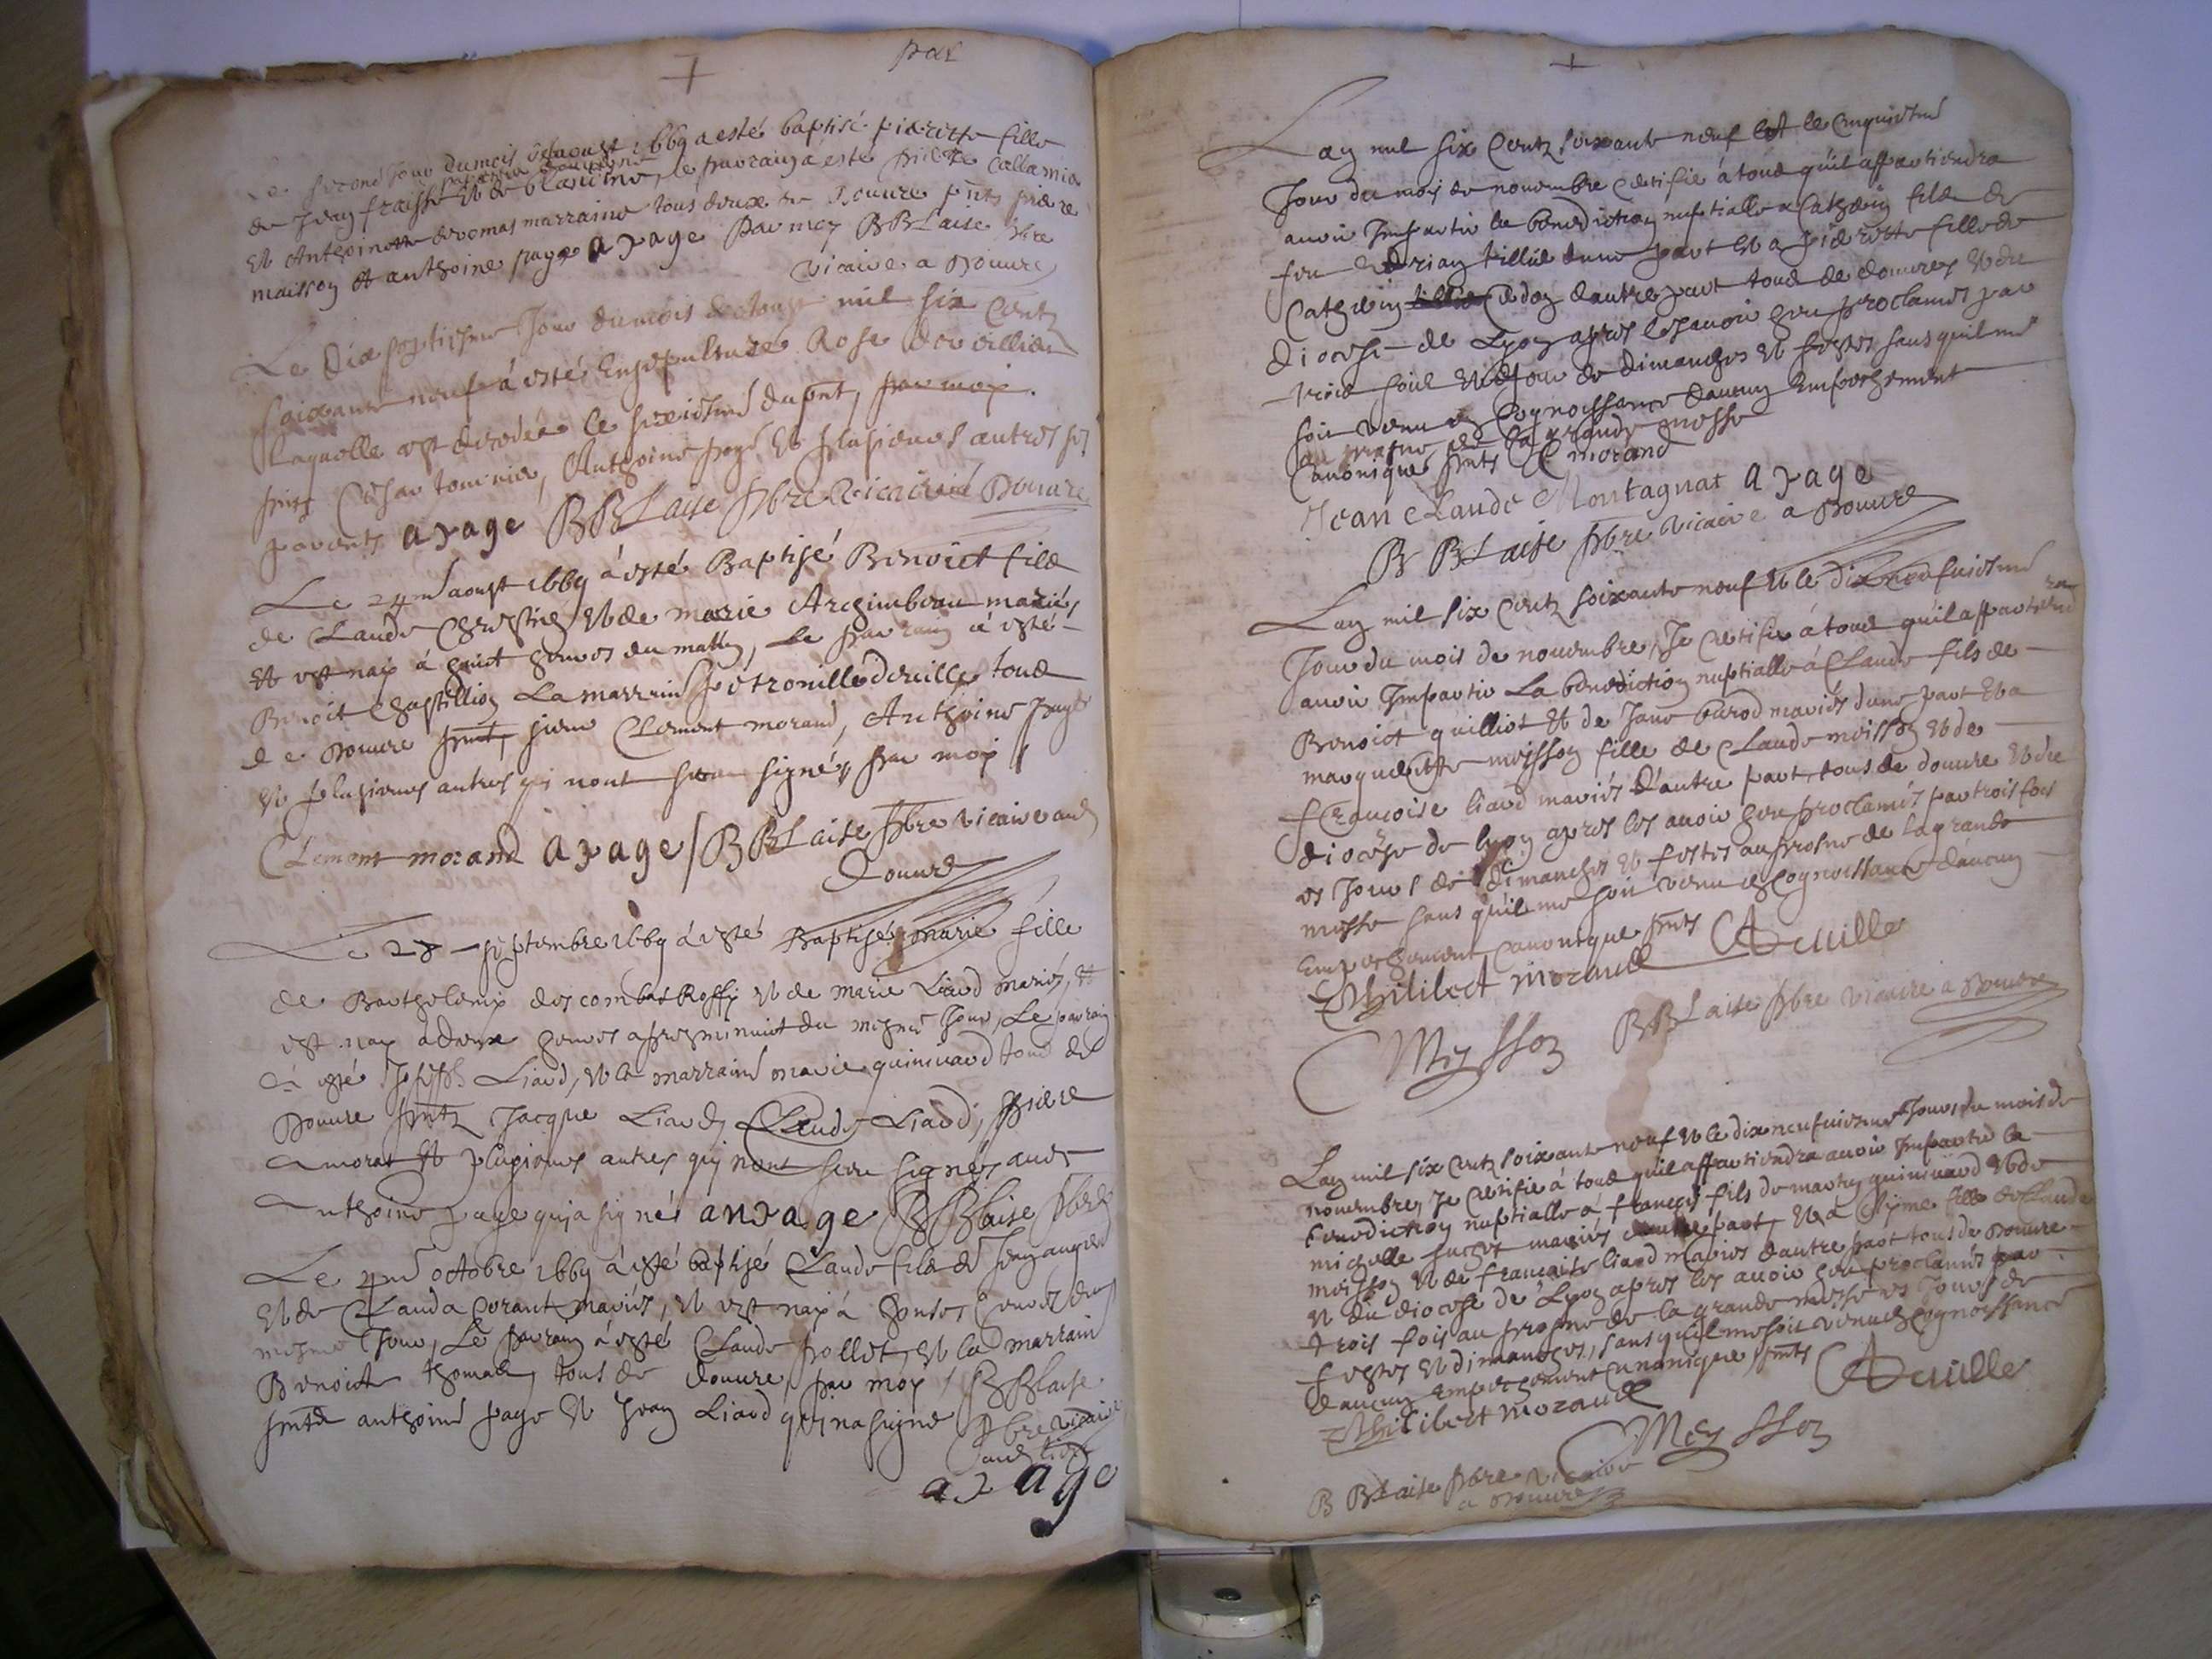 par
Le second jour dumois daoust 1669 a esté baptisé pierette fille
de Jean fraisse et de blandine, le parrain a esté pierre callamie
et Anthoinette devomas marraine tous deux de Douure pnts piere
maisson et anthoine page apage Par moy B BLaise pbre
vicaire a Douure
Le dix septiesme Jour dumois daoust mil six Centz
soixante neuf à esté Ensepulturée Rose
Laquelle est decedée le sixiesme dupnt, par moy.
pnts Cesar tominie, Anthoine page et plusieurs autres ses
parents apage B BLaise pbre vicaire à Douure
Le 24me aoust 1669 à esté Baptisé Benoict filz
de Claude Chrestien et de marie Archimbeau mariés
et est nay à huict heures du matin, Le parrain à esté
Benoit Chastillion La marraine pétronille deville tous
de Douure pnt, sieur Clement morand, Anthoine page
et plusieurs autres qui nont sceu signér, par moy
Clement morand apage B BLaise pbre vicaire aud
Douure
Le 28 septembre 1669 à esté Baptisé marie fille
de Bartholemy des combes Roffy et de marie Liaud mariés, et
est nay à deux heures apres minuict du mesme Jour, Le parrain
à esté Joseph Liaud, et la marraine marie quinivard tous de
Douure pntz Jacque Liaud, Claude Liaud, pierre
morat et plusieurs autres qui nont sceu signér avec
Anthoine page qui a signé anpage B BLaise pbre
Le 4me octobre 1669 à esté baptisé Claude filz de Jean
et de Clauda Corant mariés, et est nay à honse heures du
mesme Jour, Le parrain à esté Claude pollet, et la marraine
Benoicte thomas, tous de douure, par moy B BLaise
pnts anthoine page et Jean Liaud qui na signé pbre vicaire
aud lieu
apage
Lan mil six Centz soixante neuf et le cinquiesme
Jour du mois de novembre certifie à tous quil appartiendra
avoir Impartir la benediction nuptialle a Cathelin filz de
feu Adrian tillier dune part et a pierette fille de
Cathelin Cedoz dautre part tous de douure et du
diocese de Lyon apres les avoir heu proclamés par
trois fois et Jour de dimanches et festes sans quil me
soit venu en Cognoissance daucun Empeschement
au prosne de la grande messe
Canonique pnts C morand
Jean Claude Montagnat apage
B BLaise pbre vicaire a Douure
Lan mil six Centz soixante neuf et le dix neufuiesme
Jour du mois de novembre, Je certifie à tous quil appartiendra
avoir Impartir La benediction nuptialle à Claude fils de
Benoict quilliot et de Jane burod mariés dune part et a
marguerite meysson fille de Claude meisson et de
francoise liaud mariés d'autre part, tous de douure et du
diocése de lyon apres les avoir heu proclamés par trois fois
es Jours de dimanches et festes au prosne de la grande
messe sans quil me soit venu en cognoissance d'aucun
Empeschement canonique pnts A Deville
Philibert morand
Meysson B BLaise pbre vicaire a Douure
Lan mil six Centz soixante neuf et le dix neufuiesme Jour du mois de
novembre, Je certifie à tous quil appartiendra avoir Impartir la
benediction nuptialle à françois fils de martin quinivard et de
michelle huchet mariés dune part, et à Estienne fille de Claude
meisson et de françoise liaud mariés dautre part tous de Douure
et du diocese de Lyon apres les avoir heu proclamés par
trois fois au prosne de la grande messe es Jours de
festes et dimanches, sans quil me soit venu en Cognoissance
daucun Empeschement canonique pnts A Deville
Philibert morand
Meysson
B BLaise pbre vicaire
a Douure